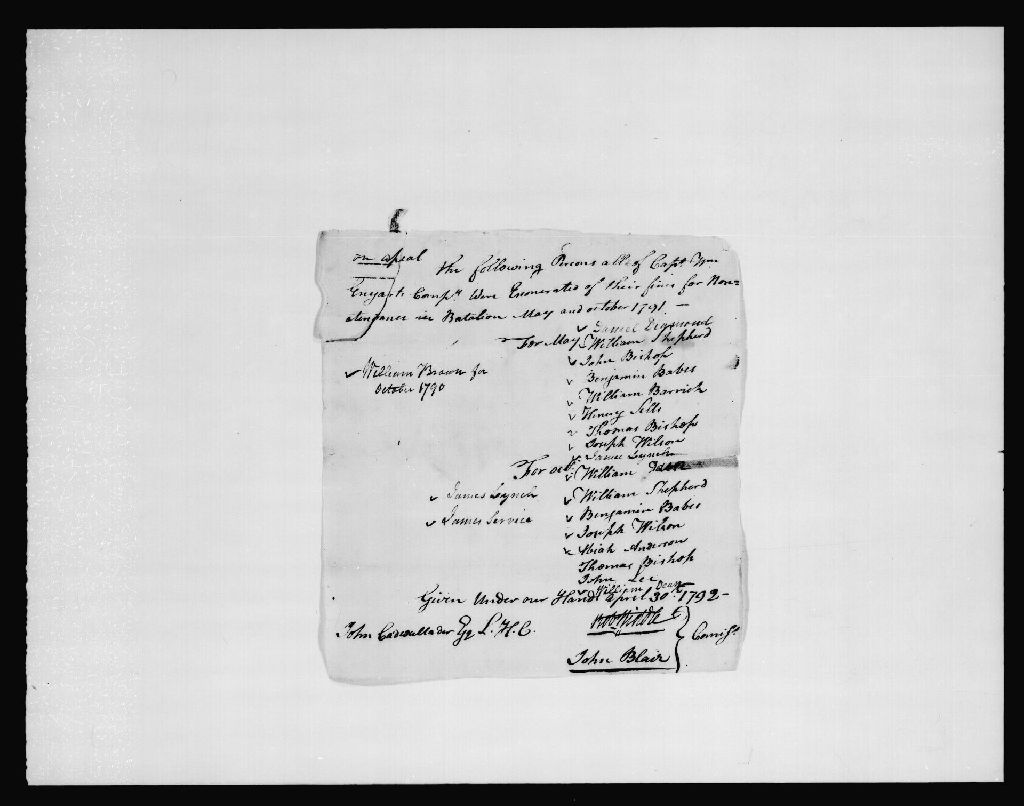 on apeal the following Persons all of Capt. Wm
Enyarts Compy. Were Exonerated of their fines for Non=
atendance in Batalion May and october 1791 —
For May Daniel Diamond
William Shepherd
John Bishop
Benjamin Babes
William Barrick
Henry
Thomas Bishop
Joseph Wilson
James Lynch
William Brown for
October 1790
For oct. William
William Shepherd
Benjamin Babes
Joseph Wilson
Abiah Anderson
Thomas Bishop
John Lee
William Dean
James Lynch
James Service
Given Under our Hands April 30th. 1792 —
John Cadwallader Esq L. H. C.
John Blair
Comist.